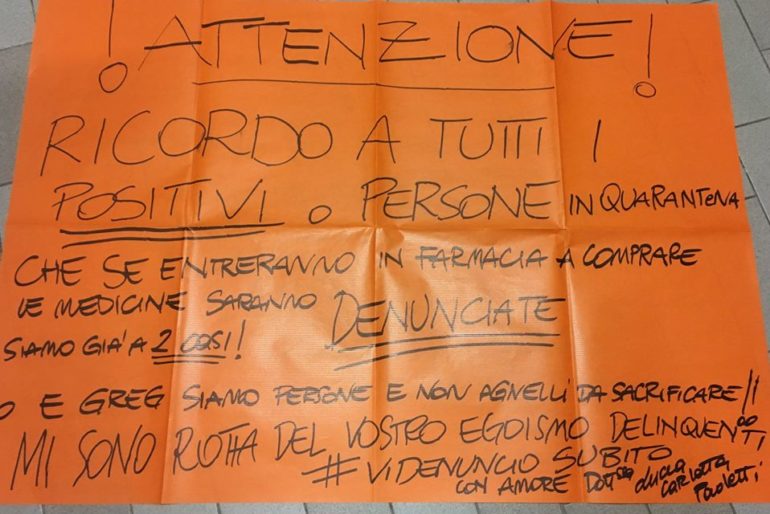 ! ATTENZIONE!
RICORDO A TUTTI I
POSITIVI O PERSONE IN QUARANTENA
CHE SE ENTRERANNO IN FARMACIA A COMPRARE
LE MEDICINE SARANNO DENUNCIATE
SIAMO GIA' A 2 CASI!
O E GREG SIAMO PERSONE E NON AGNELLI DA SACRIFICARE!!
MI SONO ROTTA DEL VOSTRO EGOISMO DELINQUENTI
#VIDENUNCIO SUBITO
CON AMORE DOTT.SSA
CARLOTTA
PAOLETTI